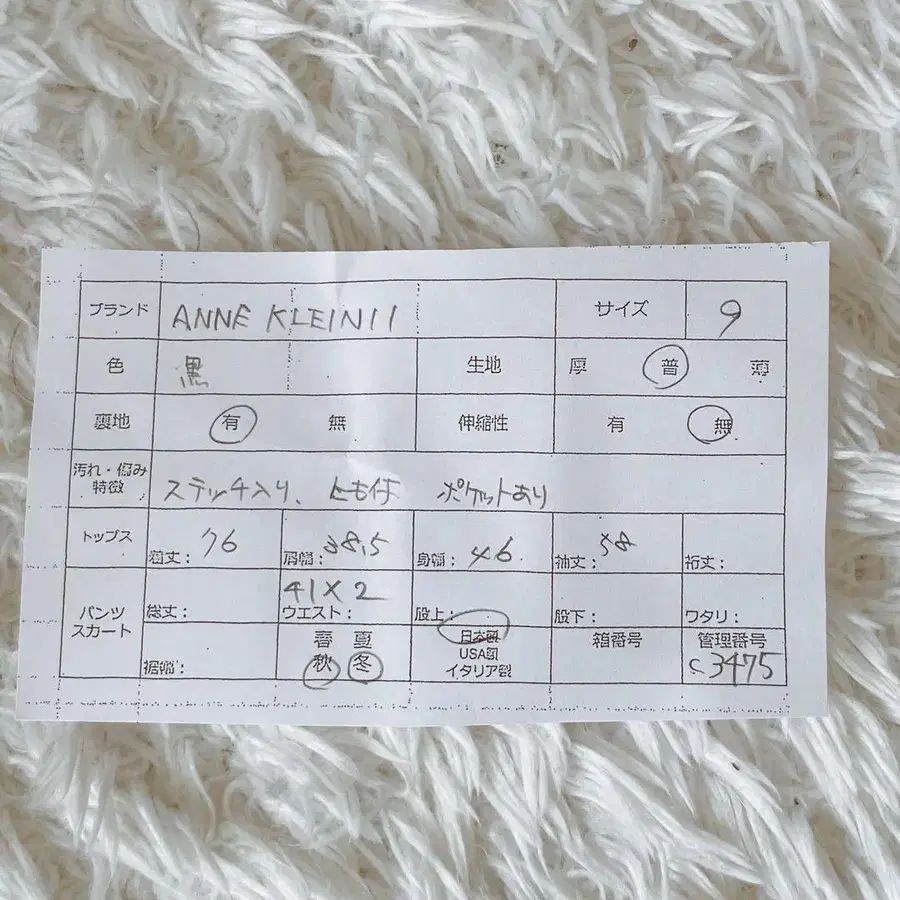 ブランド ANNE KLEIN II サイズ 9
色 黒 生地 厚 普 薄
裏地 有 無 伸縮性 有 無
汚れ・傷み
特徴 ステッチ入り、とも付 ポケットあり
トップス 着丈：76 肩幅：38.5 身幅：46 袖丈：58 裄丈：
パンツ
スカート 総丈： ウエスト：41×2 股上： 股下： ワタリ：
裾幅： 春 夏 秋 冬 日本製
USA製
イタリア製 箱番号 管理番号
C3475